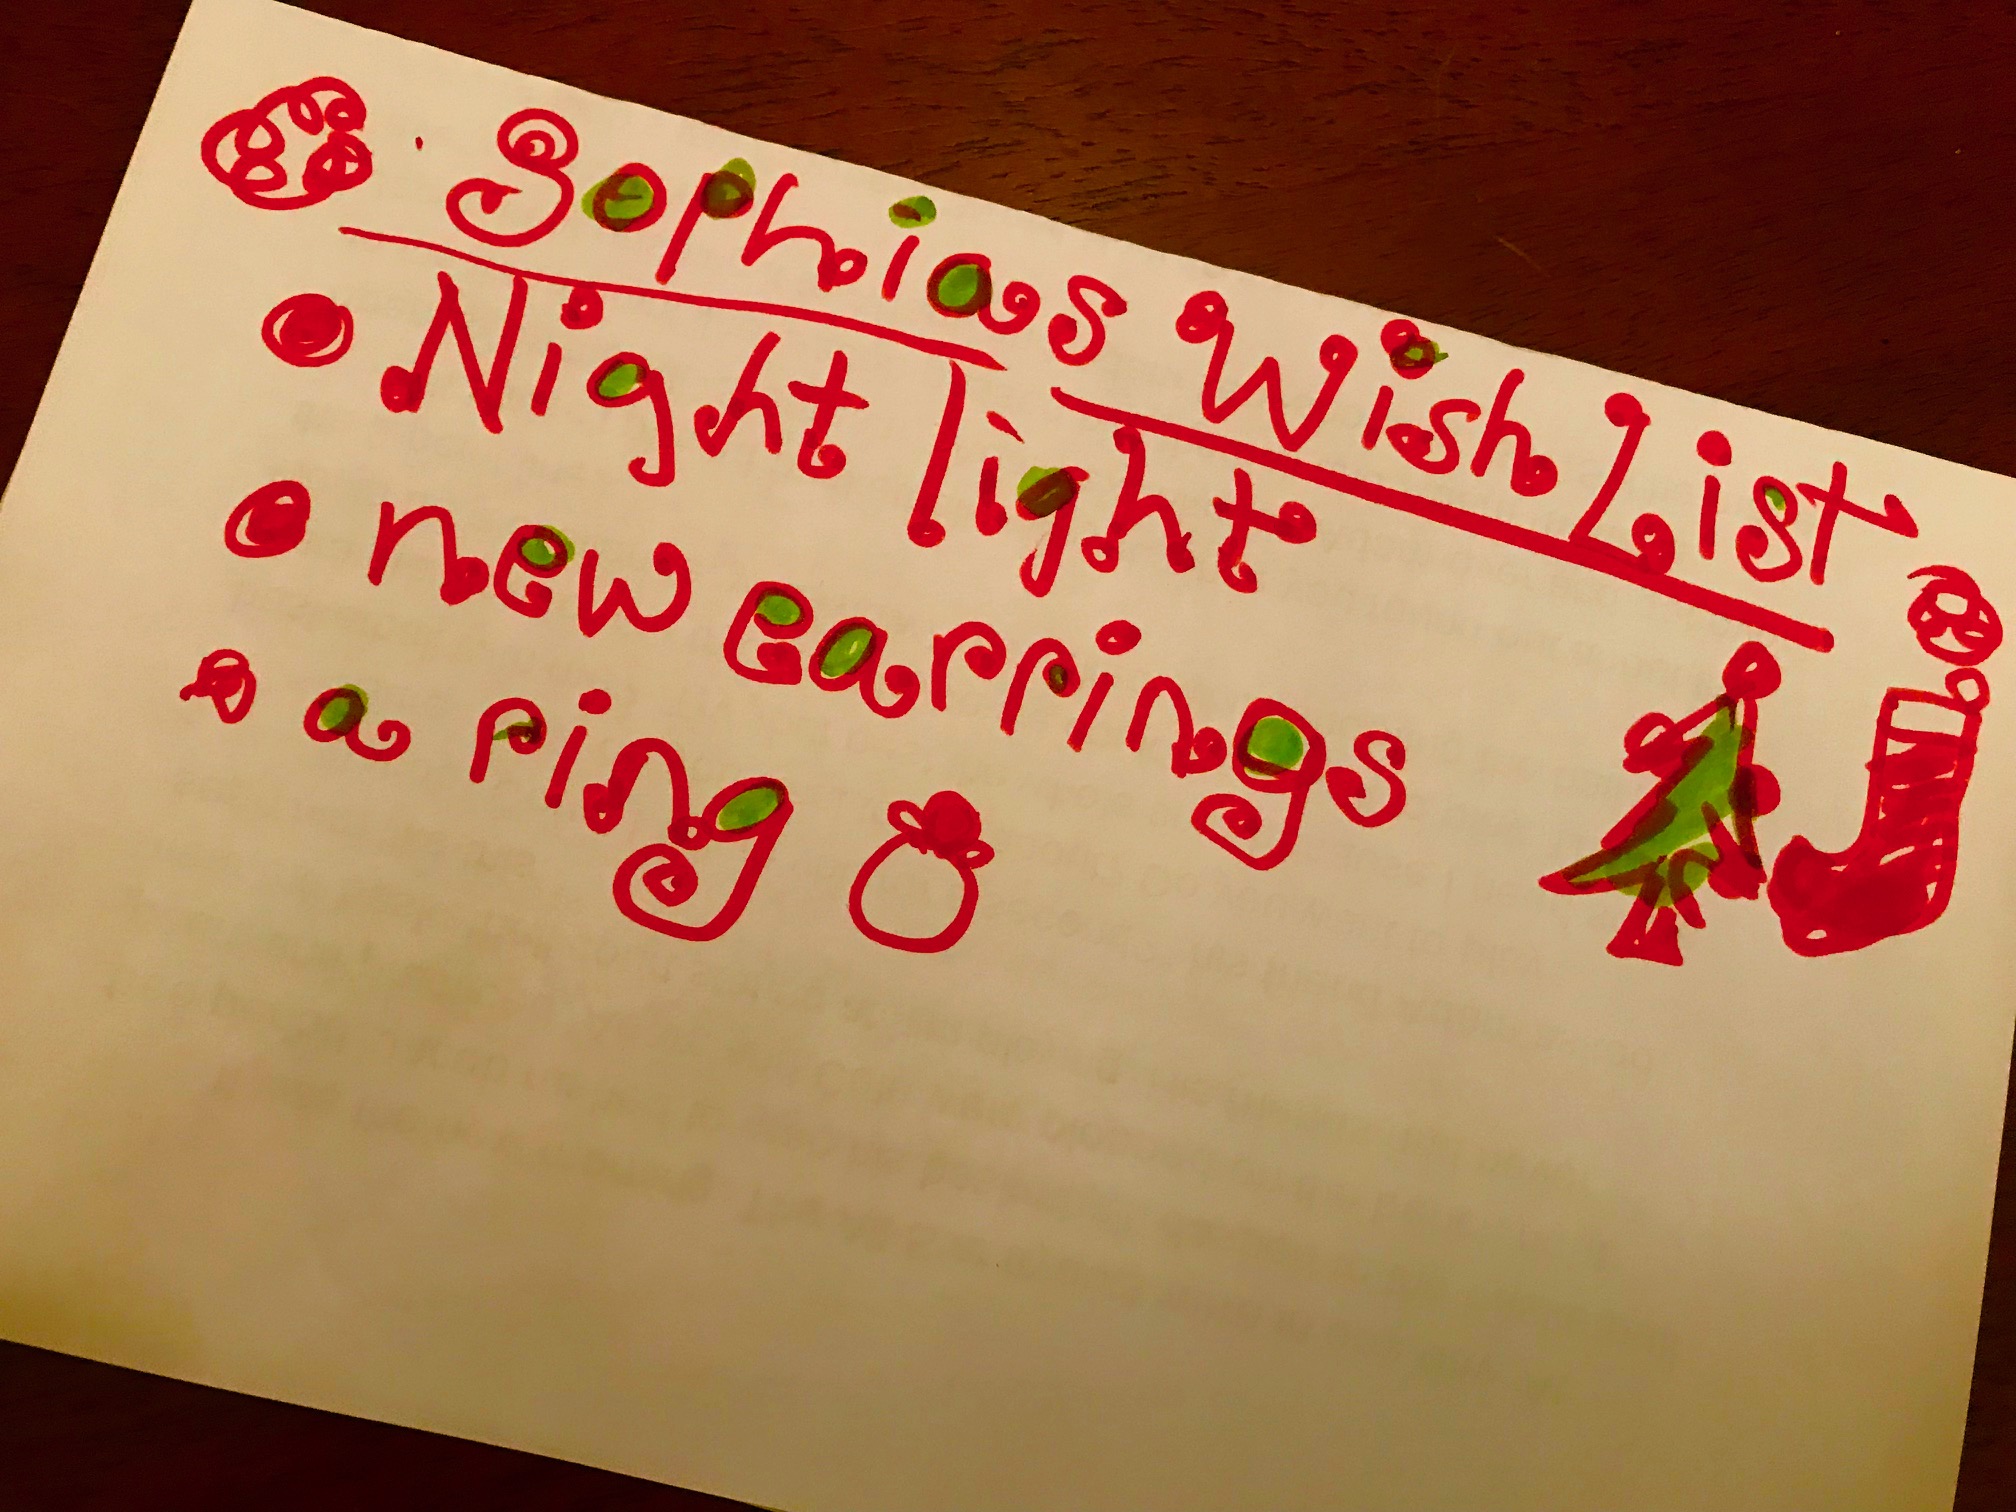 Sophias Wish List
Night light
new earrings
a ring